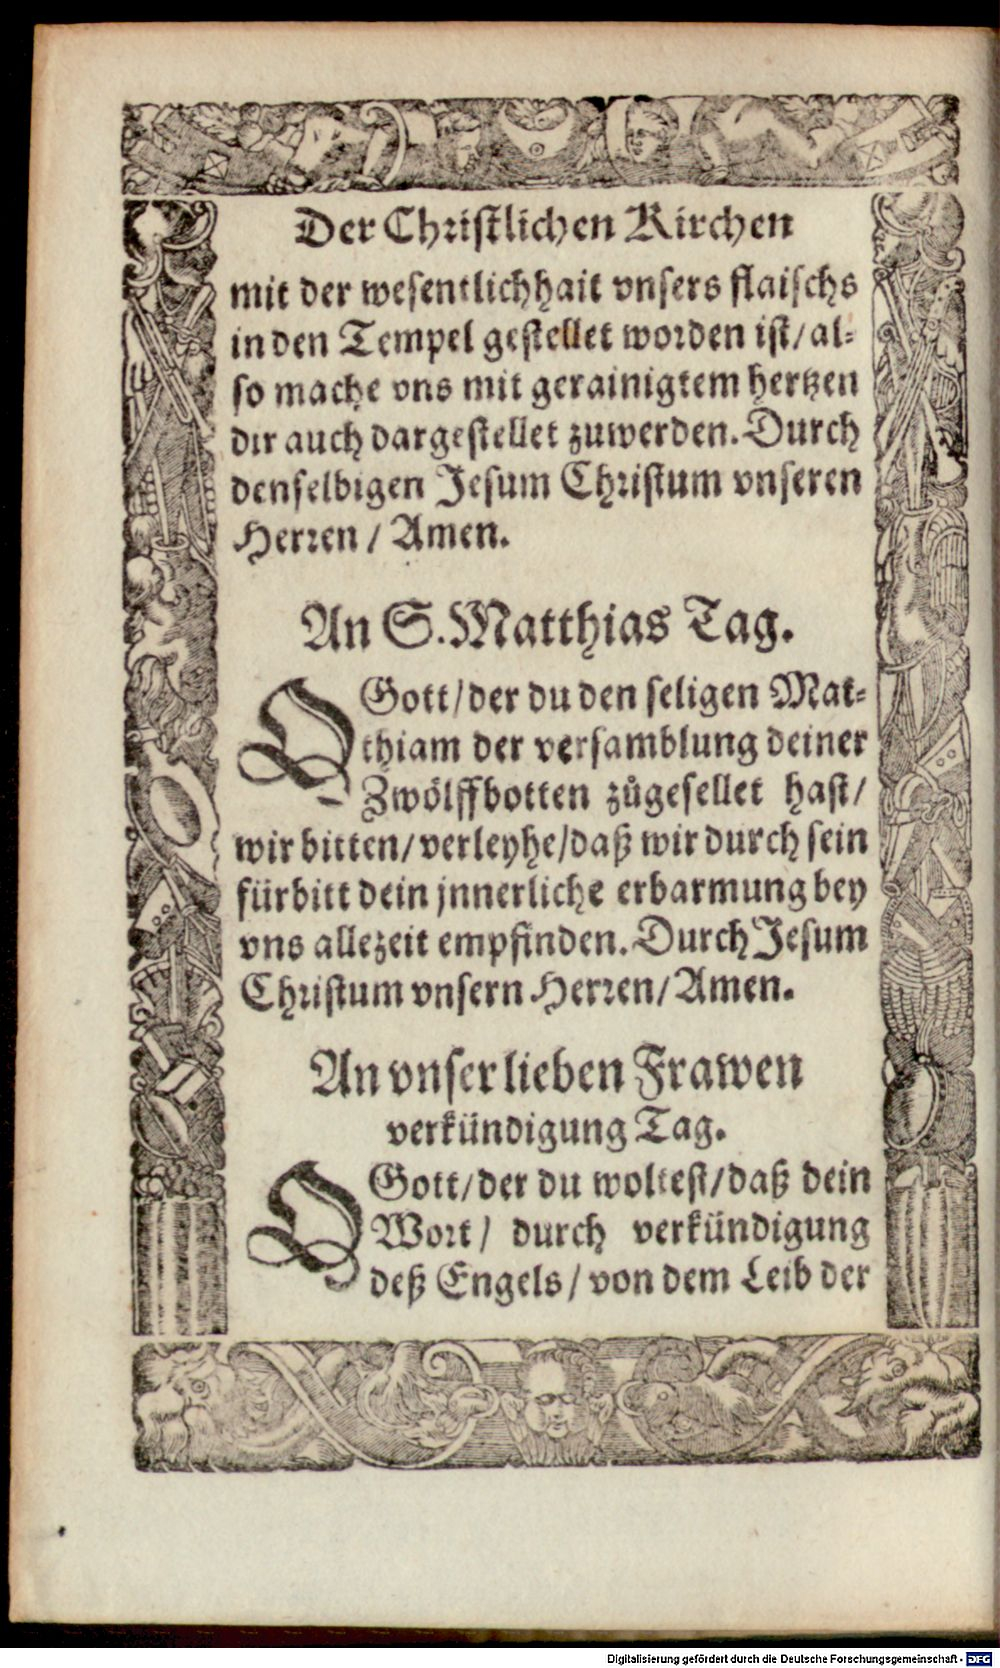 Der Christlichen Kirchen
mit der wesentlichhait vnsers flaischs
in den Tempel gestellet worden ist/ al-
so mache vns mit gerainigtem hertzen
dir auch dargestellet zuwerden. Durch
denselbigen Jesum Christum vnseren
Herren / Amen.
An S. Matthias Tag.
O Gott/ der du den seligen Mat-
thiam der versamblung deiner
Zwölffbotten zůgesellet hast/
wir bitten/ verleyhe/ daß wir durch sein
fürbitt dein jnnerliche erbarmung bey
vns allezeit empfinden. Durch Jesum
Christum vnsern Herren/ Amen.
An vnser lieben Frawen
verkündigung Tag.
O Gott/ der du woltest/ daß dein
Wort/ durch verkündigung
deß Engels/ von dem Leib der
Digitalisierung gefördert durch die Deutsche Forschungsgemeinschaft - DFG